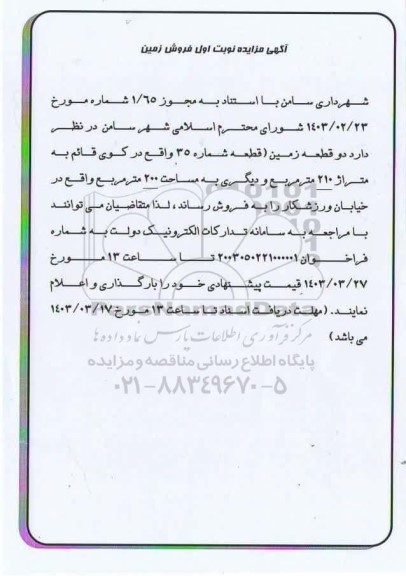 آگهی مزایده نوبت اول فروش زمین
شهرداری سامن با استناد به مجوز ۱/۶۵ شماره مورخ
۱۴۰۳/۰۲/۲۳ شورای محترم اسلامی شهر سامن در نظر
دارد دو قطعه زمین (قطعه شماره ۳۵ واقع در کوی قائم به
متراژ ۲۱۰ مترمربع و دیگری به مساحت ۲۰۰ مترمربع واقع در
خیابان ورزشکار را به فروش رساند، لذا متقاضیان می توانند
با مراجعه به سامانه تدارکات الکترونیک دولت به شماره
فراخوان ۲۰۰۳۰۵۰۲۲۱۰۰۰۰۰۱ تا ساعت ۱۳ مورخ
۱۴۰۳/۰۳/۲۷ قیمت پیشنهادی خود را بارگذاری و اعلام
نمایند. (مهلت دریافت اسناد تا ساعت ۱۳ مورخ ۱۴۰۳/۰۳/۱۷
می باشد)
مرکز فرآوری اطلاعات پارس نماد داده ها
پایگاه اطلاع رسانی مناقصه و مزایده
۰۲۱-۸۸۳۴۹۶۷۰-۵